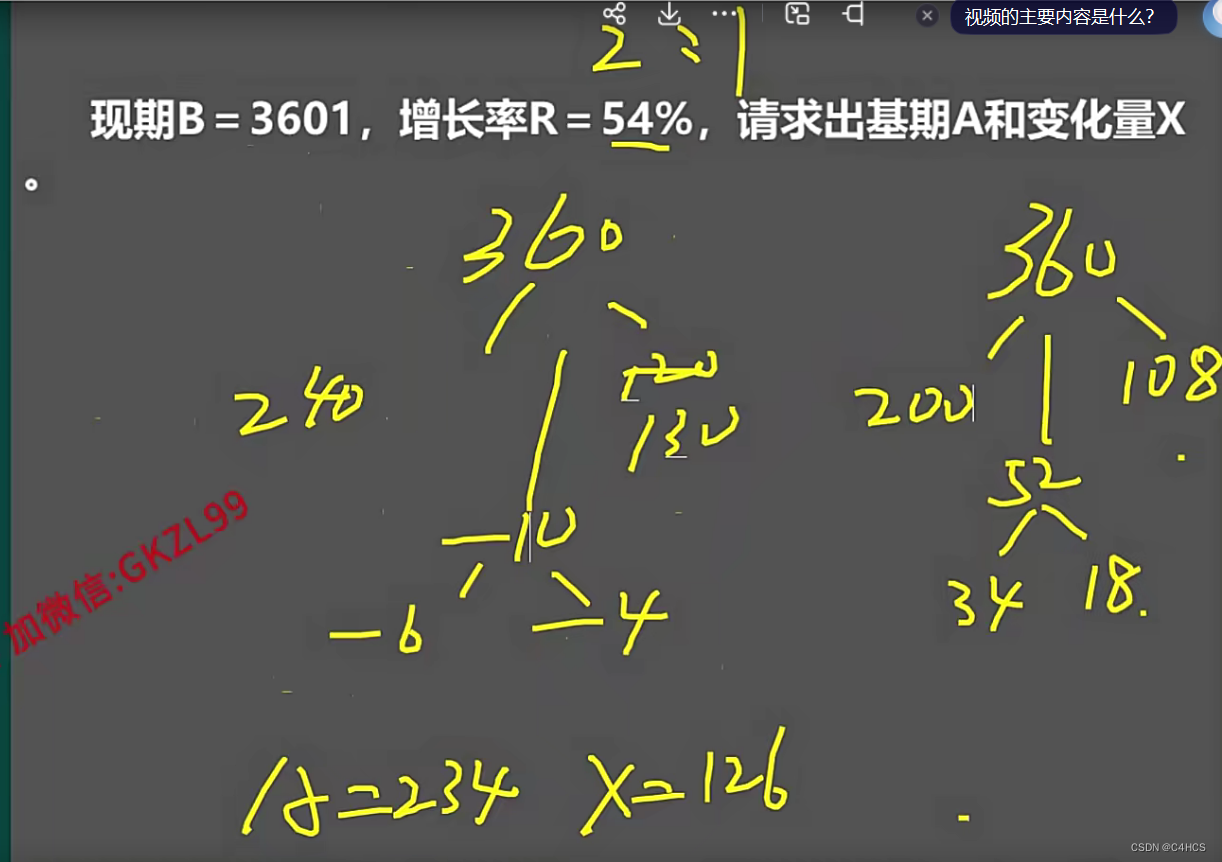 视频的主要内容是什么?
2:1
现期B=3601，增长率R=54%，请求出基期A和变化量X
360
240
120
130
-10
-6 -4
360
200
108
52
34 18.
A=234 X=126
加微信:GKZL99
CSDN @C4HCS